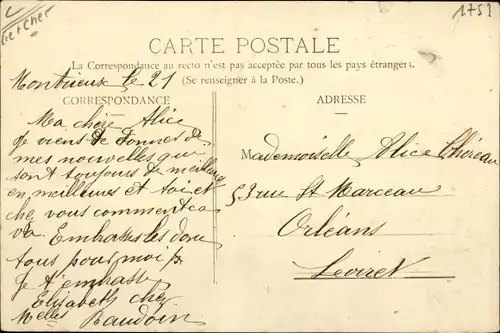 Loir et Cher
1753
CARTE POSTALE
La Correspondance au recto n'est pas acceptée par tous les pays étrangers.
(Se renseigner à la Poste.)
Montrieux le 21
CORRESPONDANCE
Ma chère Alice
Je viens de donner de
mes nouvelles qui
sont toujours de meilleures
en meilleures et toi et
chez vous comment ca
va Embrasses les donc
tous pour moi
Je t'embrasse
Elisabeth chez
Melles Baudoin
ADRESSE
Mademoiselle Alice Chéreau
53 rue St Marceau
Orléans
Loiret